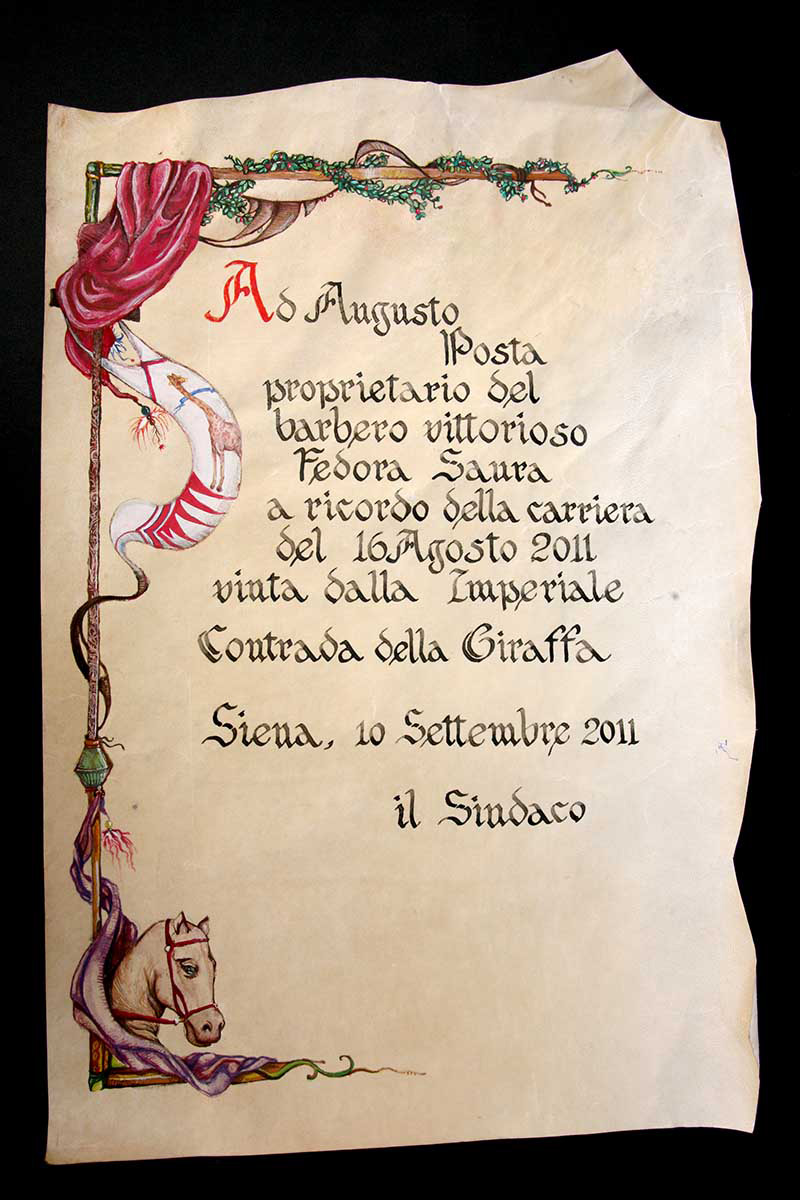 Ad Augusto
Posta
proprietario del
barbero vittorioso
Fedora Saura
a ricordo della carriera
del 16 Agosto 2011
vinta dalla Imperiale
Contrada della Giraffa
Siena, 10 Settembre 2011
il Sindaco